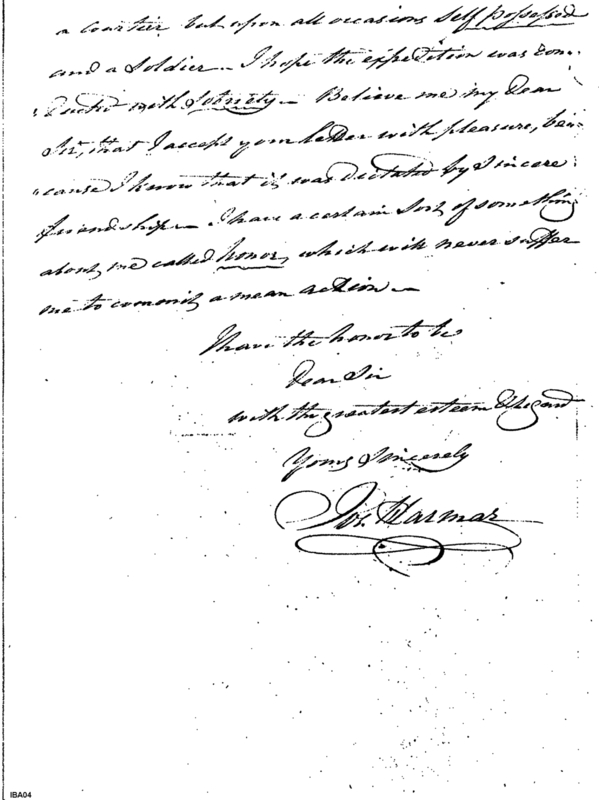 a Courtier but upon all occasions self possessed
and a Soldier — I hope the expedition was con-
ducted with Sobriety — Believe me my Dear
Sir, that I accept your Letter with pleasure, be-
"cause I know that it was dictated by Sincere
friendship — I have a certain sort of something
about me called honor, which will never suffer
me to commit a mean action —
I have the honor to be
Dear Sir
with the greatest esteem & Regard
Yours Sincerely
Jos. Harmar
IBA04